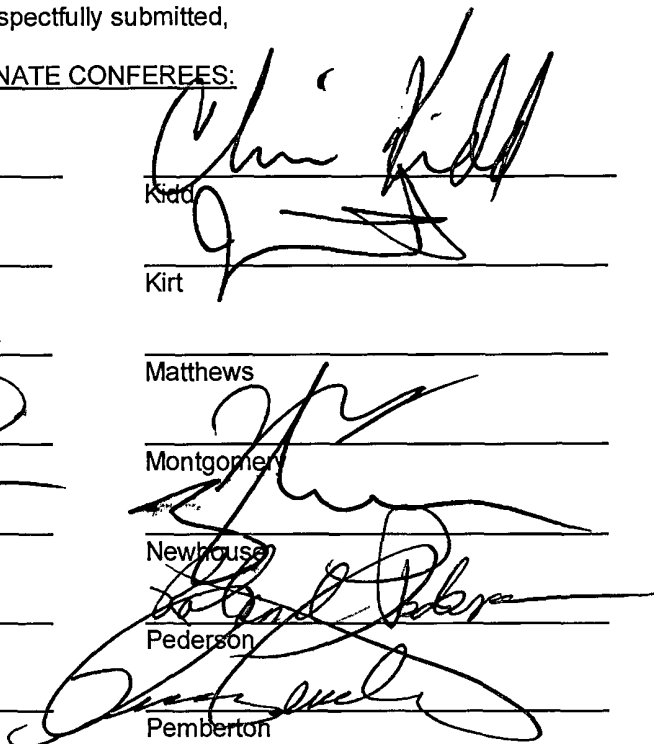 spectfully submitted,
NATE CONFEREES:
Chris Kidd
Kidd
Kirt
Matthews
Montgomery
Newhouse
Roland Pederson
Pederson
Pemberton